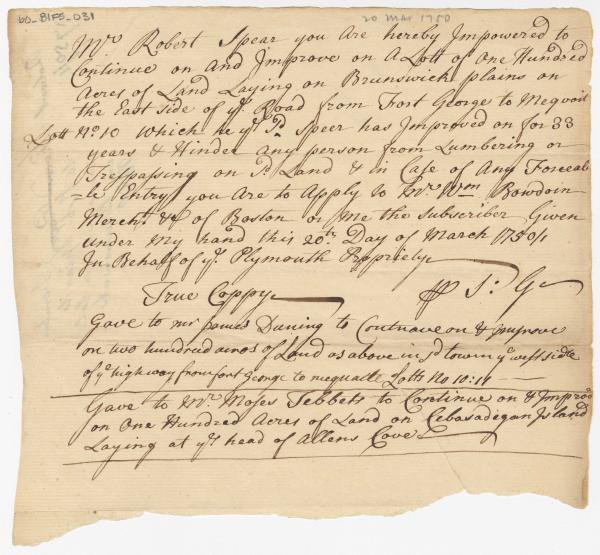 60-81FS-031
20 Mar 1750
Mr. Robert Spear you are hereby Impowered to
Continue on and Improve on A Lott of One Hundred
Acres of Land Laying on Brunswick plains on
the East side of ye. Road from Fort George to Mequoit
Lott No. 10 Which he ye. Sd. Speer has Improved on for 33
years & Hinder any person from Lumbering or
Trespassing on Sd. Land & in Case of Any Forceab
=le Entry you Are to Apply to Mr. Wm Bowdoin
Mercht. &c of Boston or Me the Subscriber Given
under My hand this 20th. Day of March 1750/1
In Behalf of ye. Plymouth Propriety
True Coppy J: G
Gave to mr James Duning to Contnave on & improve
on two hundred acres of Land as above in sd town ye west side
of ye high way from fort George to mequaite Lotts No 10:11
Gave to Mr. Moses Tebbets to Continue on & Improve
on One Hundred Acres of Land on Cebasadegan Island
Laying at ye. head of Allens Cove